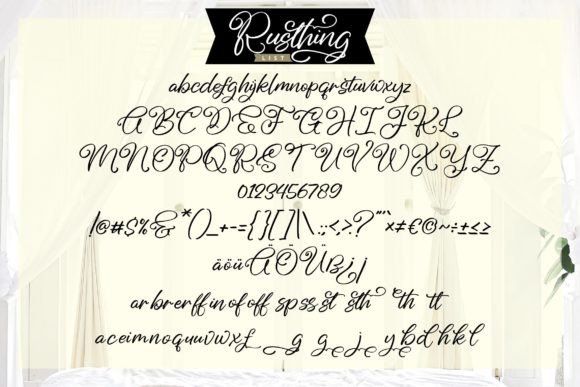 Rusthing
LIST
abcdefghijklmnopqrstuvwxyz
ABCDEFGHIJKL
MNOPQRSTUVWXYZ
0123456789
!@#$%&*()_+-={}[]|\:;<,>.?"'`×≠€©~÷±≤≥
äöüÄÖÜßij
ar br er ff in of off sp ss st sth th tt
aceimnosuvwxz g g e j e y bd hk l